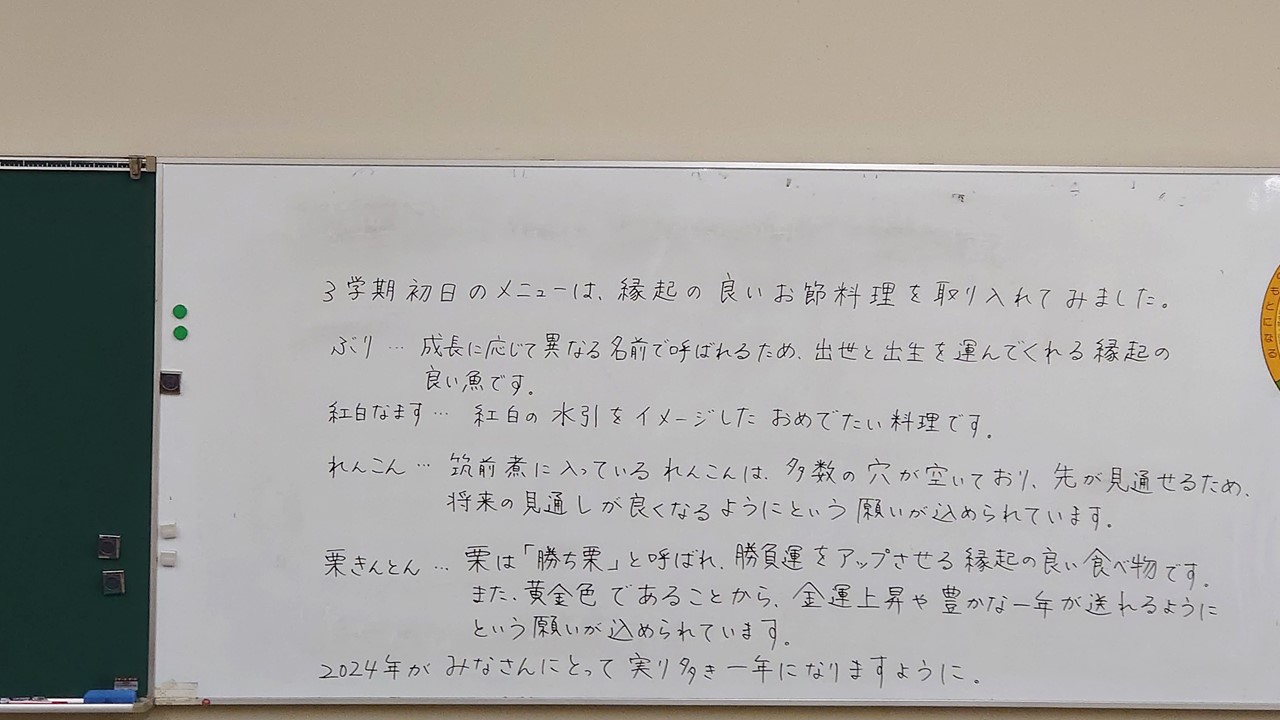 3学期初日のメニューは、縁起の良いお節料理を取り入れてみました。
ぶり… 成長に応じて異なる名前で呼ばれるため、出世と出生を運んでくれる縁起の
良い魚です。
紅白なます… 紅白の水引をイメージしたおめでたい料理です。
れんこん… 筑前煮に入っているれんこんは、多数の穴が空いており、先が見通せるため、
将来の見通しが良くなるようにという願いが込められています。
栗きんとん… 栗は「勝ち栗」と呼ばれ、勝負運をアップさせる縁起の良い食べ物です。
また、黄金色であることから、金運上昇や豊かな一年が送れるように
という願いが込められています。
2024年がみなさんにとって実り多き一年になりますように。
もとになる